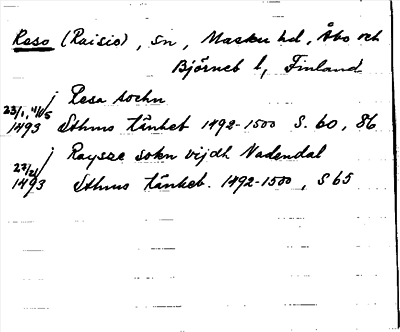 Reso (Raisio), sn, Masku hd, Åbo och
Björneb l, Finland
j Resa sochn
23/1, 4/5
1493 Sthms tänkeb 1492-1500 S. 60, 86
j Raysze sokn vijdh Nadendal
1493 Sthms tänkeb. 1492-1500, S 65